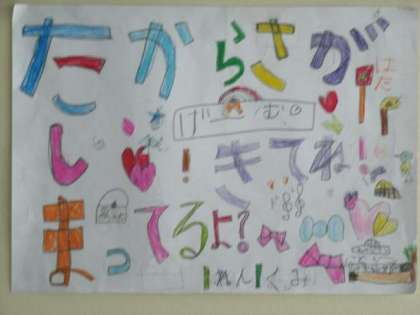 たからさが
はた
げーむ。
し!きてね!
まってるよ?
1ねん1くみ